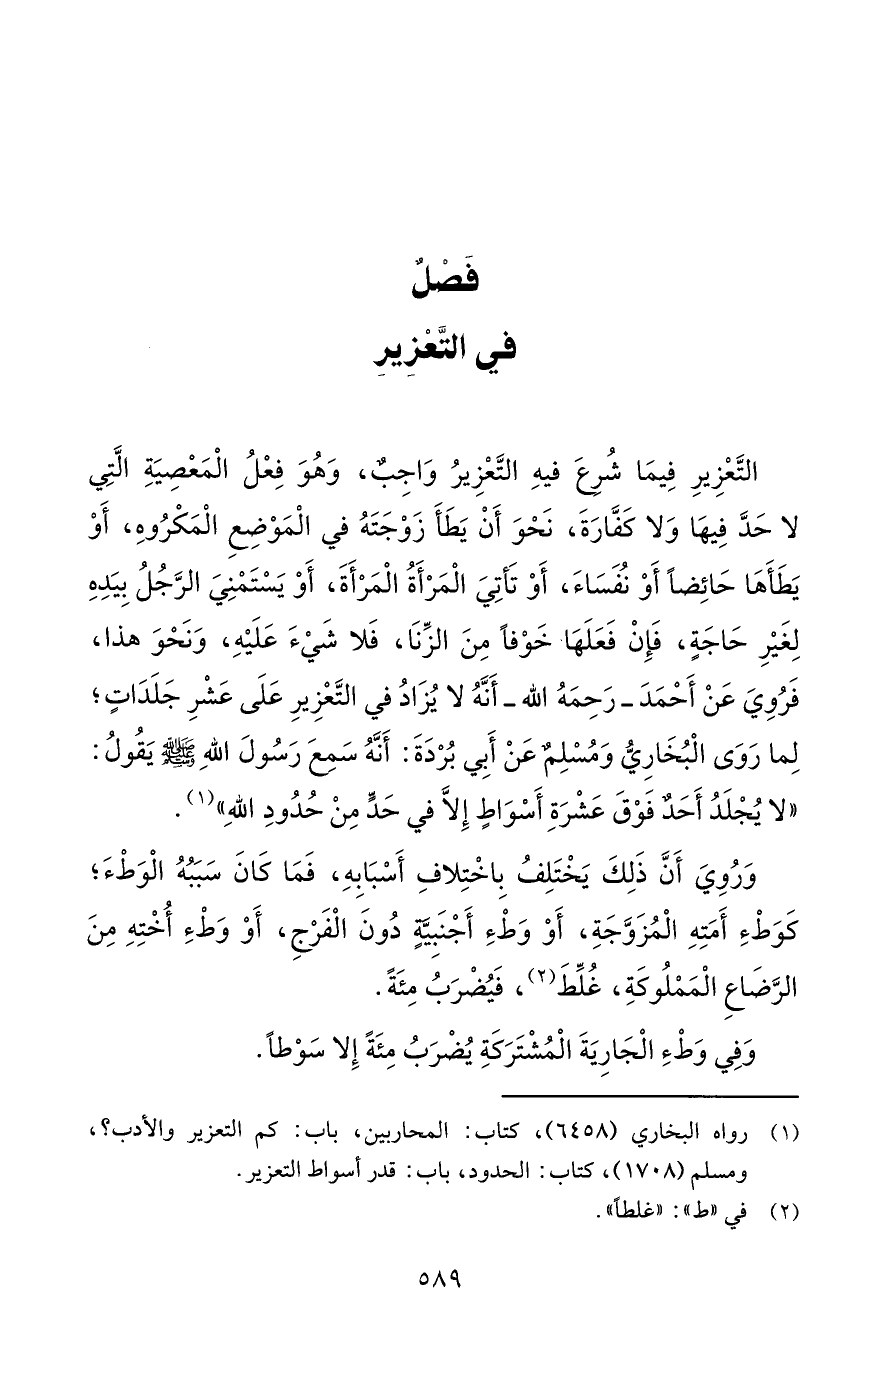 فَصْلٌ
في التَّعْزِيرِ
التَّعْزِيرِ فِيمَا شُرِعَ فيهِ التَّعْزِيرُ وَاجِبٌ، وَهُوَ فِعْلُ الْمَعْصِيَةِ الَّتِي
لا حَدَّ فِيهَا وَلا كَفَّارَةَ، نَحْوَ أَنْ يَطَأَ زَوْجَتَهُ في الْمَوْضِعِ الْمَكْرُوهِ، أَوْ
يَطَأَهَا حَائِضاً أَوْ نُفَسَاءَ، أَوْ تَأتِيَ الْمَرْأَةُ الْمَرْأَةَ، أَوْ يَسْتَمْنِيَ الرَّجُلُ بِيَدِهِ
لِغَيْرِ حَاجَةٍ، فَإِنْ فَعَلَهَا خَوْفاً مِنَ الزِّنَا، فَلا شَيْءَ عَلَيْهِ، وَنَحْوَ هذا،
فَرُوِيَ عَنْ أَحْمَدَ ـ رَحِمَهُ الله ـ أَنَّهُ لا يُزَادُ في التَّعْزِيرِ عَلَى عَشْرِ جَلَدَاتٍ؛
لِما رَوَى الْبُخَارِيُّ وَمُسْلِمٌ عَنْ أَبِي بُرْدَةَ: أَنَّهُ سَمِعَ رَسُولَ اللهِ ﷺ يَقُولُ:
«لا يُجْلَدُ أَحَدٌ فَوْقَ عَشْرَةِ أَسْوَاطٍ إِلاَّ في حَدٍّ مِنْ حُدُودِ اللهِ»(١).
وَرُوِيَ أَنَّ ذَلِكَ يَخْتَلِفُ بِاخْتِلافِ أَسْبَابِهِ، فَمَا كَانَ سَبَبُهُ الْوَطْءَ؛
كَوَطْءِ أَمَتِهِ الْمُزَوَّجَةِ، أَوْ وَطْءِ أَجْنَبِيَّةٍ دُونَ الْفَرْجِ، أَوْ وَطْءِ أُخْتِهِ مِنَ
الرَّضَاعِ الْمَمْلُوكَةِ، غُلِّظَ(٢)، فَيُضْرَبُ مِئَةً.
وَفِي وَطْءِ الْجَارِيَةَ الْمُشْتَرَكَةِ يُضْرَبُ مِئَةً إِلا سَوْطاً.
(١) رواه البخاري (٦٤٥٨)، كتاب: المحاربين، باب: كم التعزير والأدب؟،
ومسلم (١٧٠٨)، كتاب: الحدود، باب: قدر أسواط التعزير.
(٢) في «ط»: «غلطاً».
٥٨٩